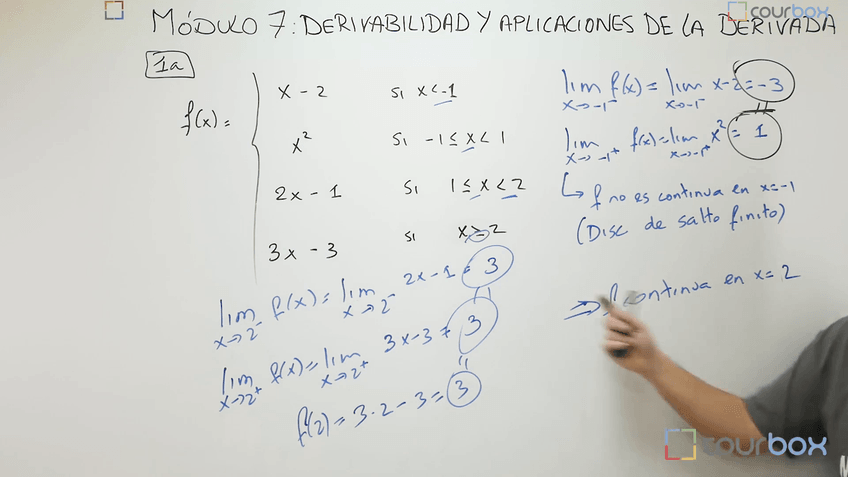 MÓDULO 7: DERIVABILIDAD Y APLICACIONES DE LA DERIVADA
courbox
1a
f(x) =
x - 2 si x < -1
x² si -1 ≤ x < 1
2x - 1 si 1 ≤ x < 2
3x - 3 si x ≥ 2
lim x→-1⁻ f(x) = lim x→-1⁻ x-2 = -3
lim x→-1⁺ f(x) = lim x→-1⁺ x² = 1
↳ f no es continua en x=-1
(Disc de salto finito)
lim x→2⁻ f(x) = lim x→2⁻ 2x-1 = 3
lim x→2⁺ f(x) = lim x→2⁺ 3x-3 = 3
f(2) = 3·2-3 = 3
⇒ f continua en x=2
courbox